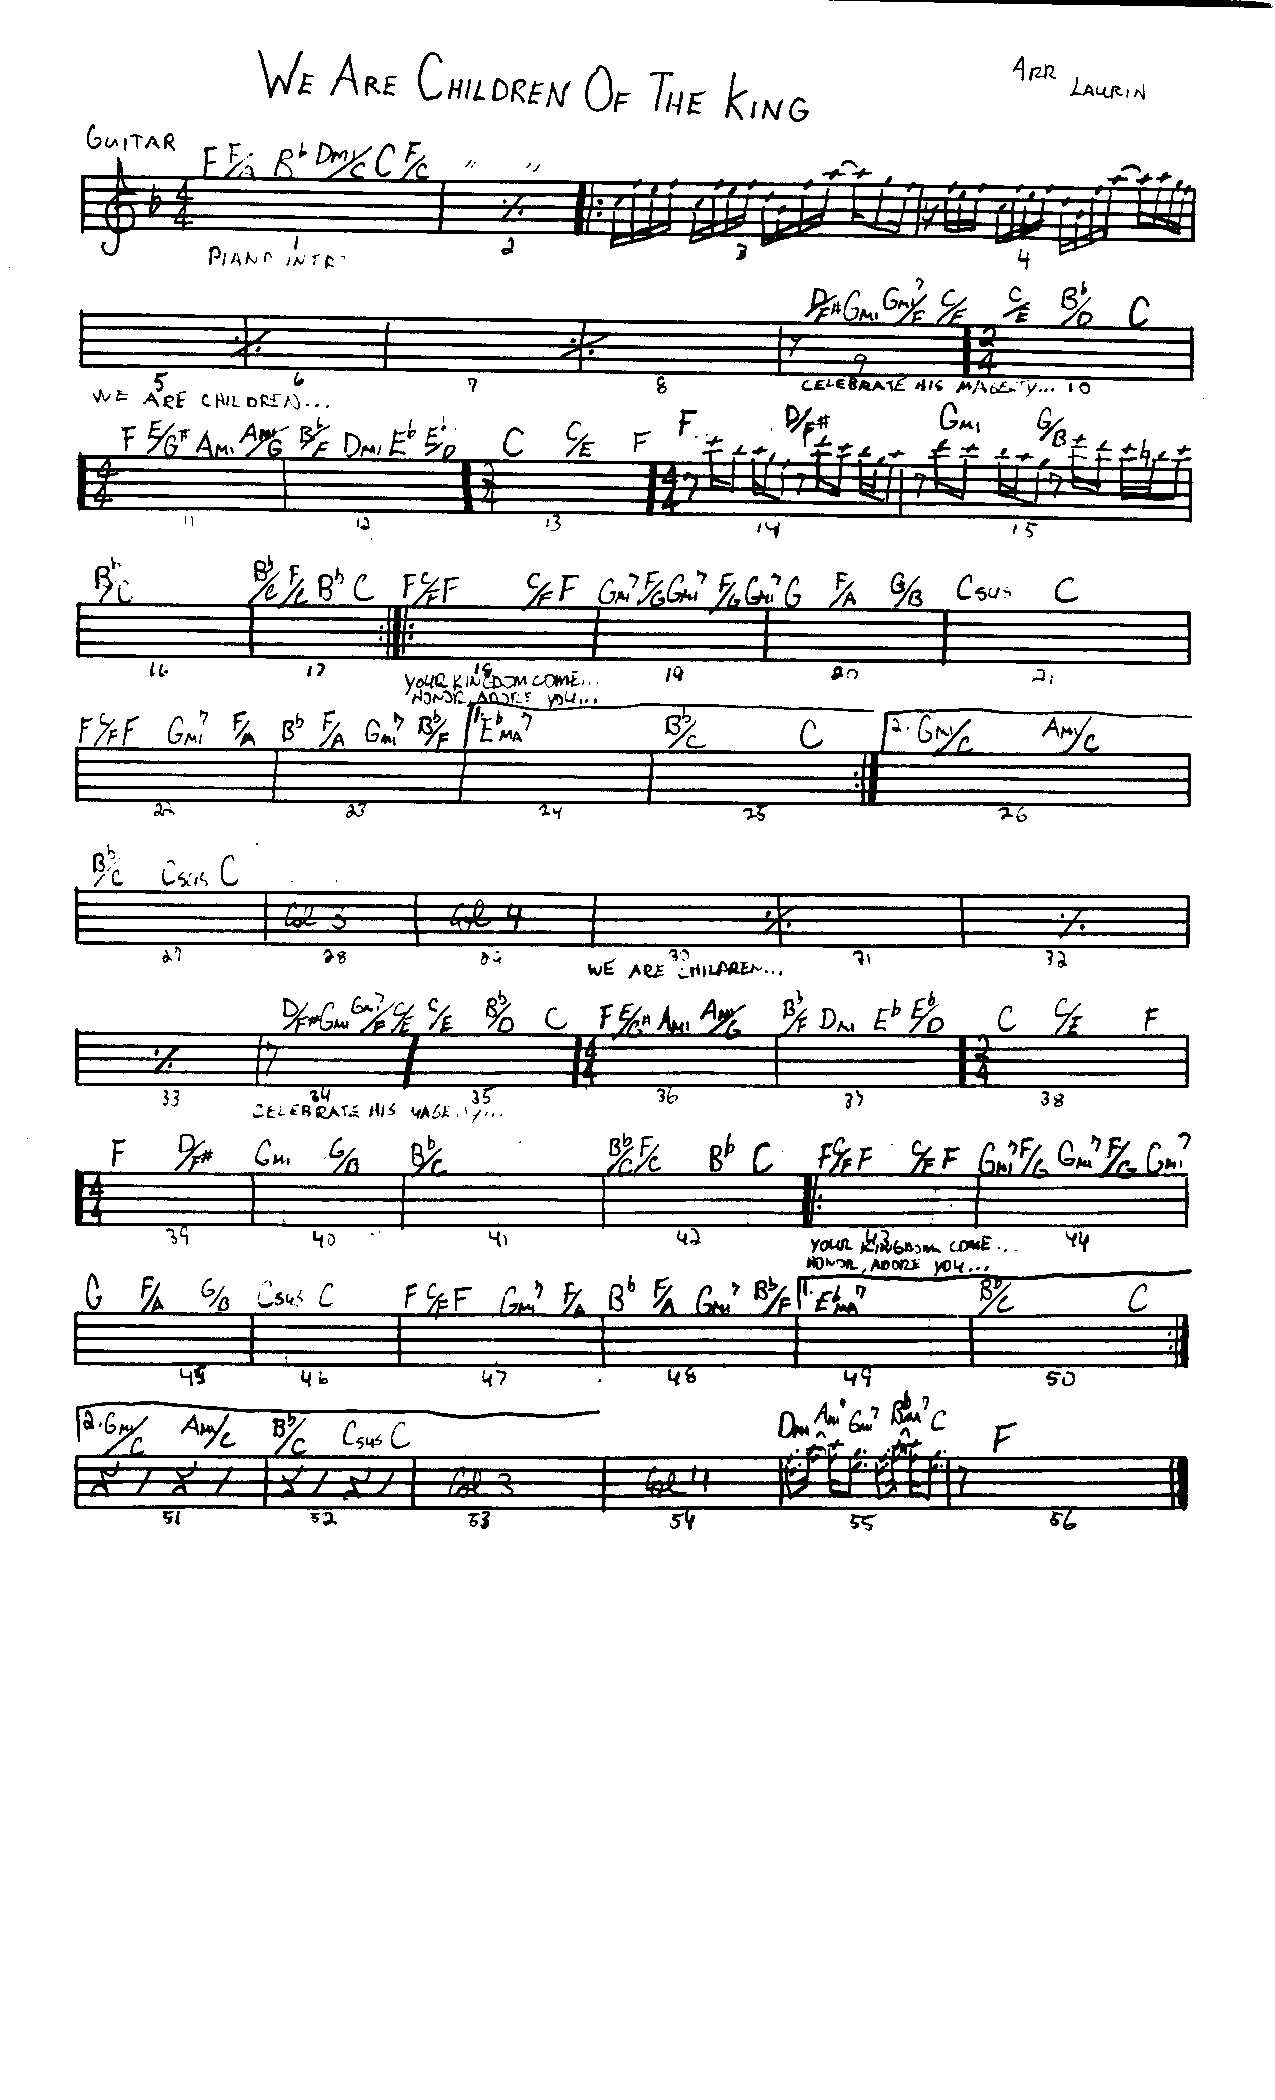 WE ARE CHILDREN OF THE KING
ARR LAURIN
GUITAR
F F/A B♭ Dmi/C C F/C " "
PIANO INTR
1 2 3 4
D/F# Gmi Gmi7/F C/E C/E B♭/D C
5 6 7 8 9 10
WE ARE CHILDREN... CELEBRATE HIS MAGESTY...
F E/G# Ami Ami/G B♭/F Dmi E♭ E♭/D C C/E F F D/F# Gmi G/B
11 12 13 14 15
B♭/C B♭/C F/C B♭ C F C/F F C/F F Gmi7 F/G Gmi7 F/G Gmi7 G F/A G/B Csus C
16 17 18 19 20 21
YOUR KINGDOM COME...
HONOR, ADORE YOU...
F C/F F Gmi7 F/A B♭ F/A Gmi7 B♭/F 1. E♭MA7 B♭/C C 2. Gmi/C Ami/C
22 23 24 25 26
B♭/C Csus C
Col 3 Col 4
27 28 29 30 31 32
WE ARE CHILDREN...
D/F# Gmi Gmi7/F C/E C/E B♭/D C F E/G# Ami Ami/G B♭/F Dmi E♭ E♭/D C C/E F
33 34 35 36 37 38
CELEBRATE HIS MAGESTY...
F D/F# Gmi G/B B♭/C B♭/C F/C B♭ C F C/F F C/F F Gmi7 F/G Gmi7 F/G Gmi7
39 40 41 42 43 44
YOUR KINGDOM COME...
HONOR, ADORE YOU...
G F/A G/B Csus C F C/F F Gmi7 F/A B♭ F/A Gmi7 B♭/F 1. E♭MA7 B♭/C C
45 46 47 48 49 50
2. Gmi/C Ami/C B♭/C Csus C Dmi Ami7 Gmi7 B♭MA7 C F
Col 3 Col 4
51 52 53 54 55 56